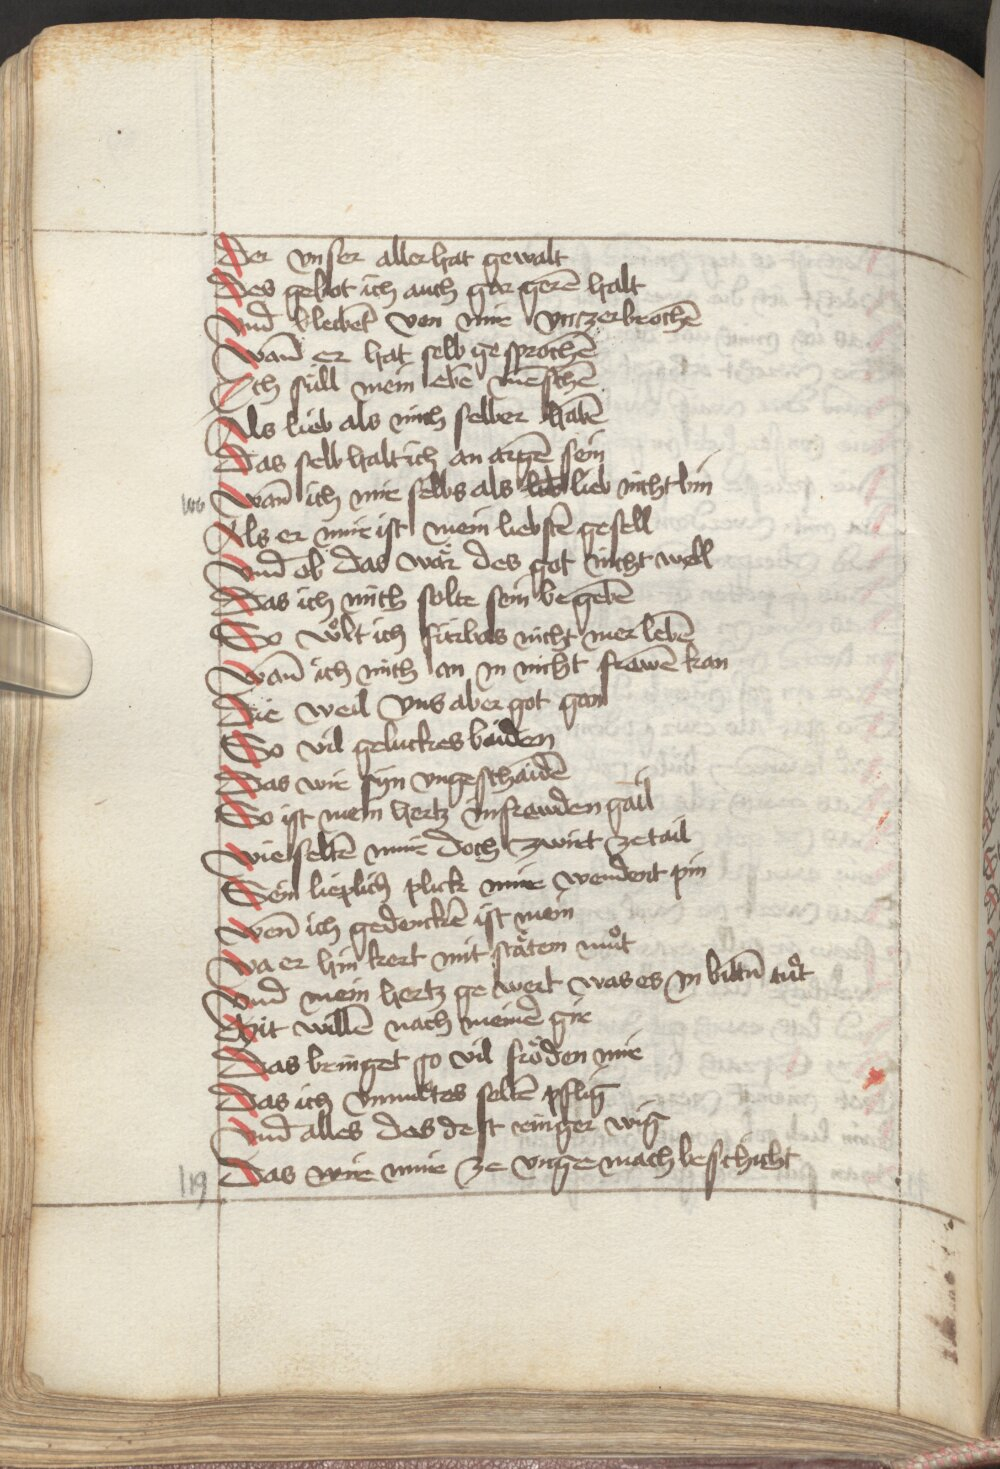 Der vnser aller hat gewalt
Des gebot ich auch gar gerē halt
Vnd blecbet von mir vnczerbrochē
Wan̄ er hat selb gesprochē
Ich süll mein ebē mēschē
Als lieb als mich selber habē
Das selb halt ich an argē sein
100 Wan̄ ich mir selbs als lieb nicht bin
Als er mir ist mein liebstē gesell
Vnd ob das wär des got nicht well
Das ich mich solte sein begebē
So wölt ich fürbas nicht mer lebē
Wan̄ ich mich an in nicht frawē kan
Die weil vns aber got gan
So vil geluckes baiden
Das wir sijn vngeschaidē
So ist mein hertz in frewden gail
Wie seltē mir doch zwirt ze tail
Sein lieplich plick mir wendent pin
Wen̄ ich gedenckē ist mein
Wa er hin kert mit stätem muͦt
Vnd mein hertz gewert was es in bittn̄ tuͦt
Mit willē nach meinē gir
Das bringet so vil fröden mir
Das ich vnmuͦtes seltē pflig
Vnd alles des dest ringer wig
119 Das wir mir ze vngemach beschicht